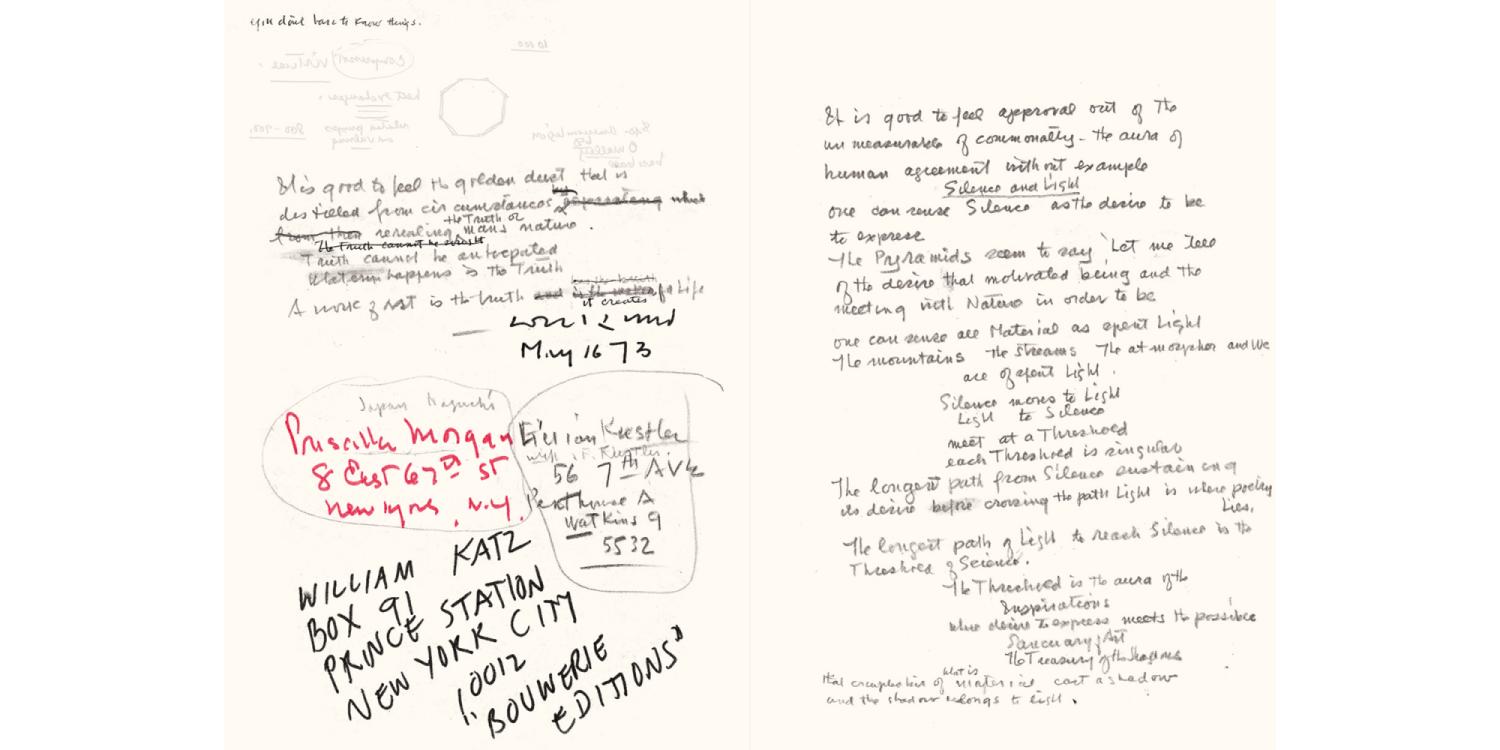 you don't have to know things.
10 000
Component virtue.
heat exchanger.
800-900.
It is good to feel the golden dust that is
distilled from circumstances by expressing which
from then revealing the Truth of man's nature.
The Truth cannot be sought
Truth cannot be anticipated
Whatever happens is the Truth
A work of Art is the truth and is the maker of a Life
it creates
Louis I Kahn
May 16 73
Japan Noguchi
Priscilla Morgan
8 East 67th St
New York, N.Y.
Kuestler
56 7th Ave
Penthouse A
Watkins 9
5532
WILLIAM KATZ
BOX 91
PRINCE STATION
NEW YORK CITY
10012
"BOUWERIE
EDITIONS"
It is good to feel approval out of The
unmeasurable of commonalty - the aura of
human agreement without example
Silence and Light
one can sense Silence as the desire to be
to express
The Pyramids seem to say, Let me Tell
of the desire that motivated being and the
meeting with Nature in order to be
one can sense all Material as spent Light
The mountains The streams The atmospher and We
are of spent Light.
Silence moves to Light
Light to Silence
meet at a Threshold
each Threshold is singular
The longest path from Silence sustaining
its desire before crossing the path Light is where poetry
Lies.
The longest path of Light to reach Silence is the
Threshold of Science.
The Threshold is the aura of the
Inspirations
where desire to express meets the possible
Sanctuary of Art
The Treasury of the Shadows
what is
of material cast a shadow
and the shadow belongs to light.